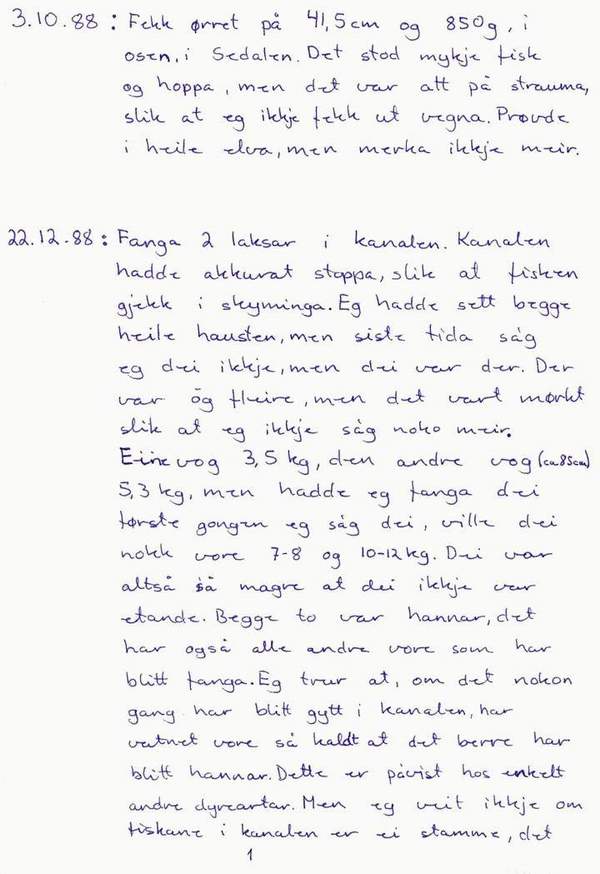 3.10.88: Fekk ørret på 41,5cm og 850g, i
osen, i Sedalen. Det stod mykje fisk
og hoppa, men det var att på strauma,
slik at eg ikkje fekk ut vegna. Prøvde
i heile elva, men merka ikkje meir.
22.12.88: Fanga 2 laksar i kanalen. Kanalen
hadde akkurat stoppa, slik at fisken
gjekk i skyminga. Eg hadde sett begge
heile hausten, men siste tida såg
eg dei ikkje, men dei var der. Der
var òg fleire, men det vart mørkt
slik at eg ikkje såg noko meir.
Eine vog 3,5 kg, den andre vog (ca 85cm)
5,3 kg, men hadde eg fanga dei
første gongen eg såg dei, ville dei
nokk vore 7-8 og 10-12kg. Dei var
altså så magre at dei ikkje var
etande. Begge to var hannar, det
har også alle andre vore som har
blitt fanga. Eg trur at, om det nokon
gang har blitt gytt i kanalen, har
vatnet vore så kaldt at det berre har
blitt hannar. Dette er påvist hos enkelt
andre dyreartar. Men eg veit ikkje om
fiskane i kanalen er ei stamme, det
1